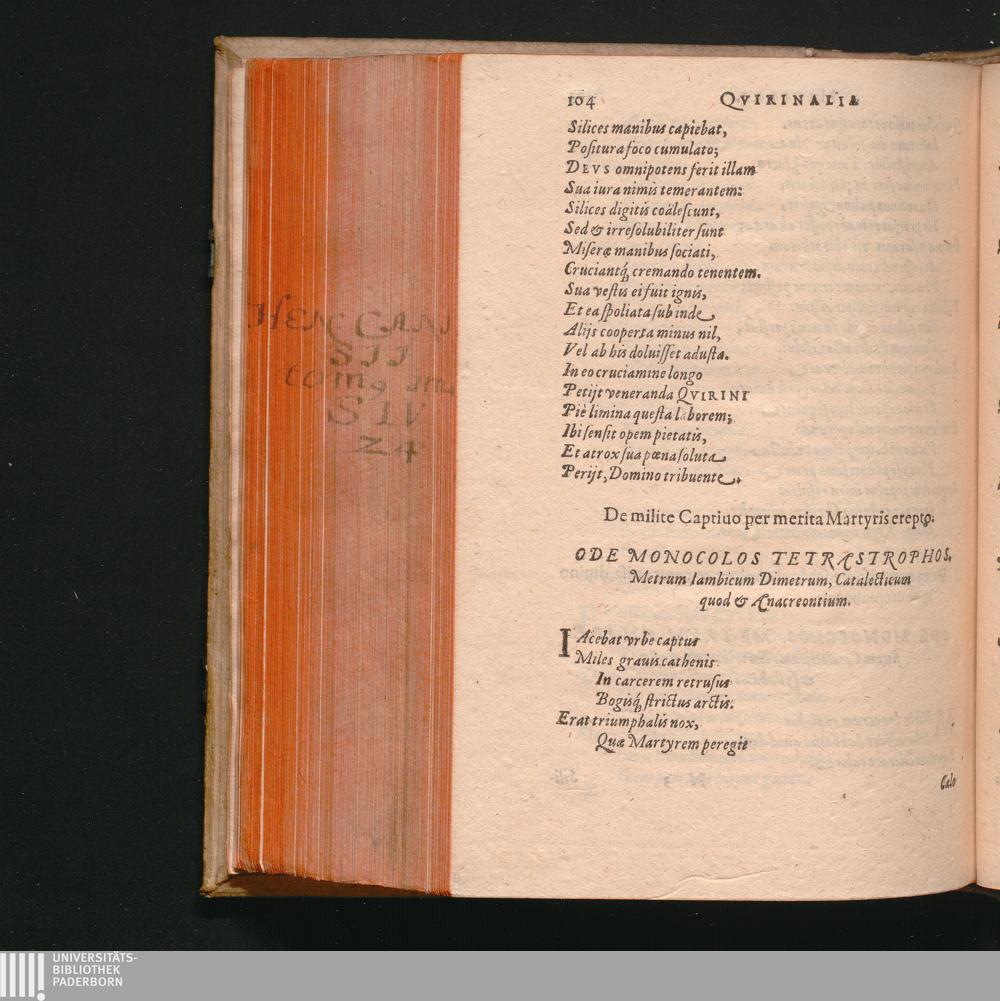 104 QVIRINALIA
Silices manibus capiebat,
Positura foco cumulato;
DEVS omnipotens ferit illam
Sua iura nimis temerantem:
Silices digitis coälescunt,
Sed & irresolubiliter sunt
Miseræ manibus sociati,
Cruciantq́; cremando tenentem.
Sua vestis ei fuit ignis,
Et ea spoliata subinde
Alijs cooperta minus nil,
Vel ab his doluisset adusta.
In eo cruciamine longo
Petijt veneranda QVIRINI
Piè limina questa laborem;
Ibi sensit opem pietatis,
Et atrox sua pœna soluta
Perijt, Domino tribuente.
De milite Captiuo per merita Martyris erepto.
ODE MONOCOLOS TETRASTROPHOS.
Metrum Iambicum Dimetrum, Catalecticum
quod & Anacreontium.
IAcebat vrbe captus
Miles grauis cathenis
In carcerem retrusus
Bogisq́; strictus arctis.
Erat triumphalis nox,
Quæ Martyrem peregit
Calo
HEN CAN
SII
com
SIV
24
UNIVERSITÄTS-
BIBLIOTHEK
PADERBORN